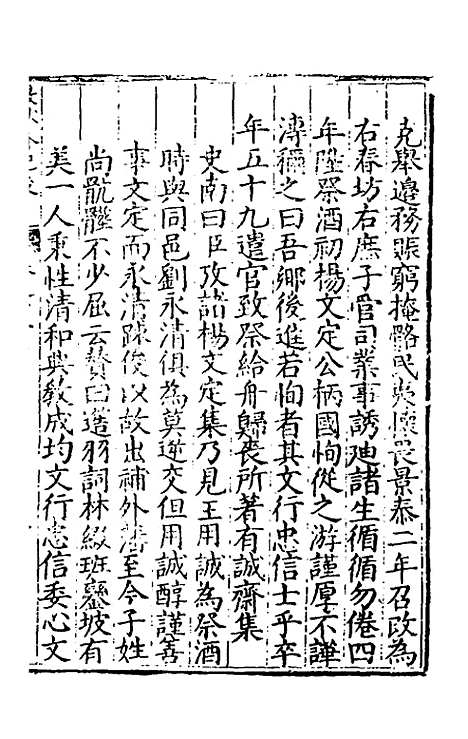 克舉邊務賑窮掩骼民夷懷畏景泰二年召改為
右春坊右庶子管司業事誘廸諸生循循勿倦四
年陞祭酒初楊文定公柄國恂從之游謹厚不譁
溥稱之曰吾鄉後進若恂者其文行忠信士乎卒
年五十九遣官致祭給舟歸喪所著有誠齋集
史南曰臣攷諸楊文定集乃見王用誠為祭酒
時與同邑劉永清俱為莫逆交但用誠醇謹善
事文定而永清踈俊以故出補外藩至今子姓
尚骯髒不少屈云贊曰造羽詞林綴班鑾坡有
美一人秉性清和典教成均文行忠信委心文